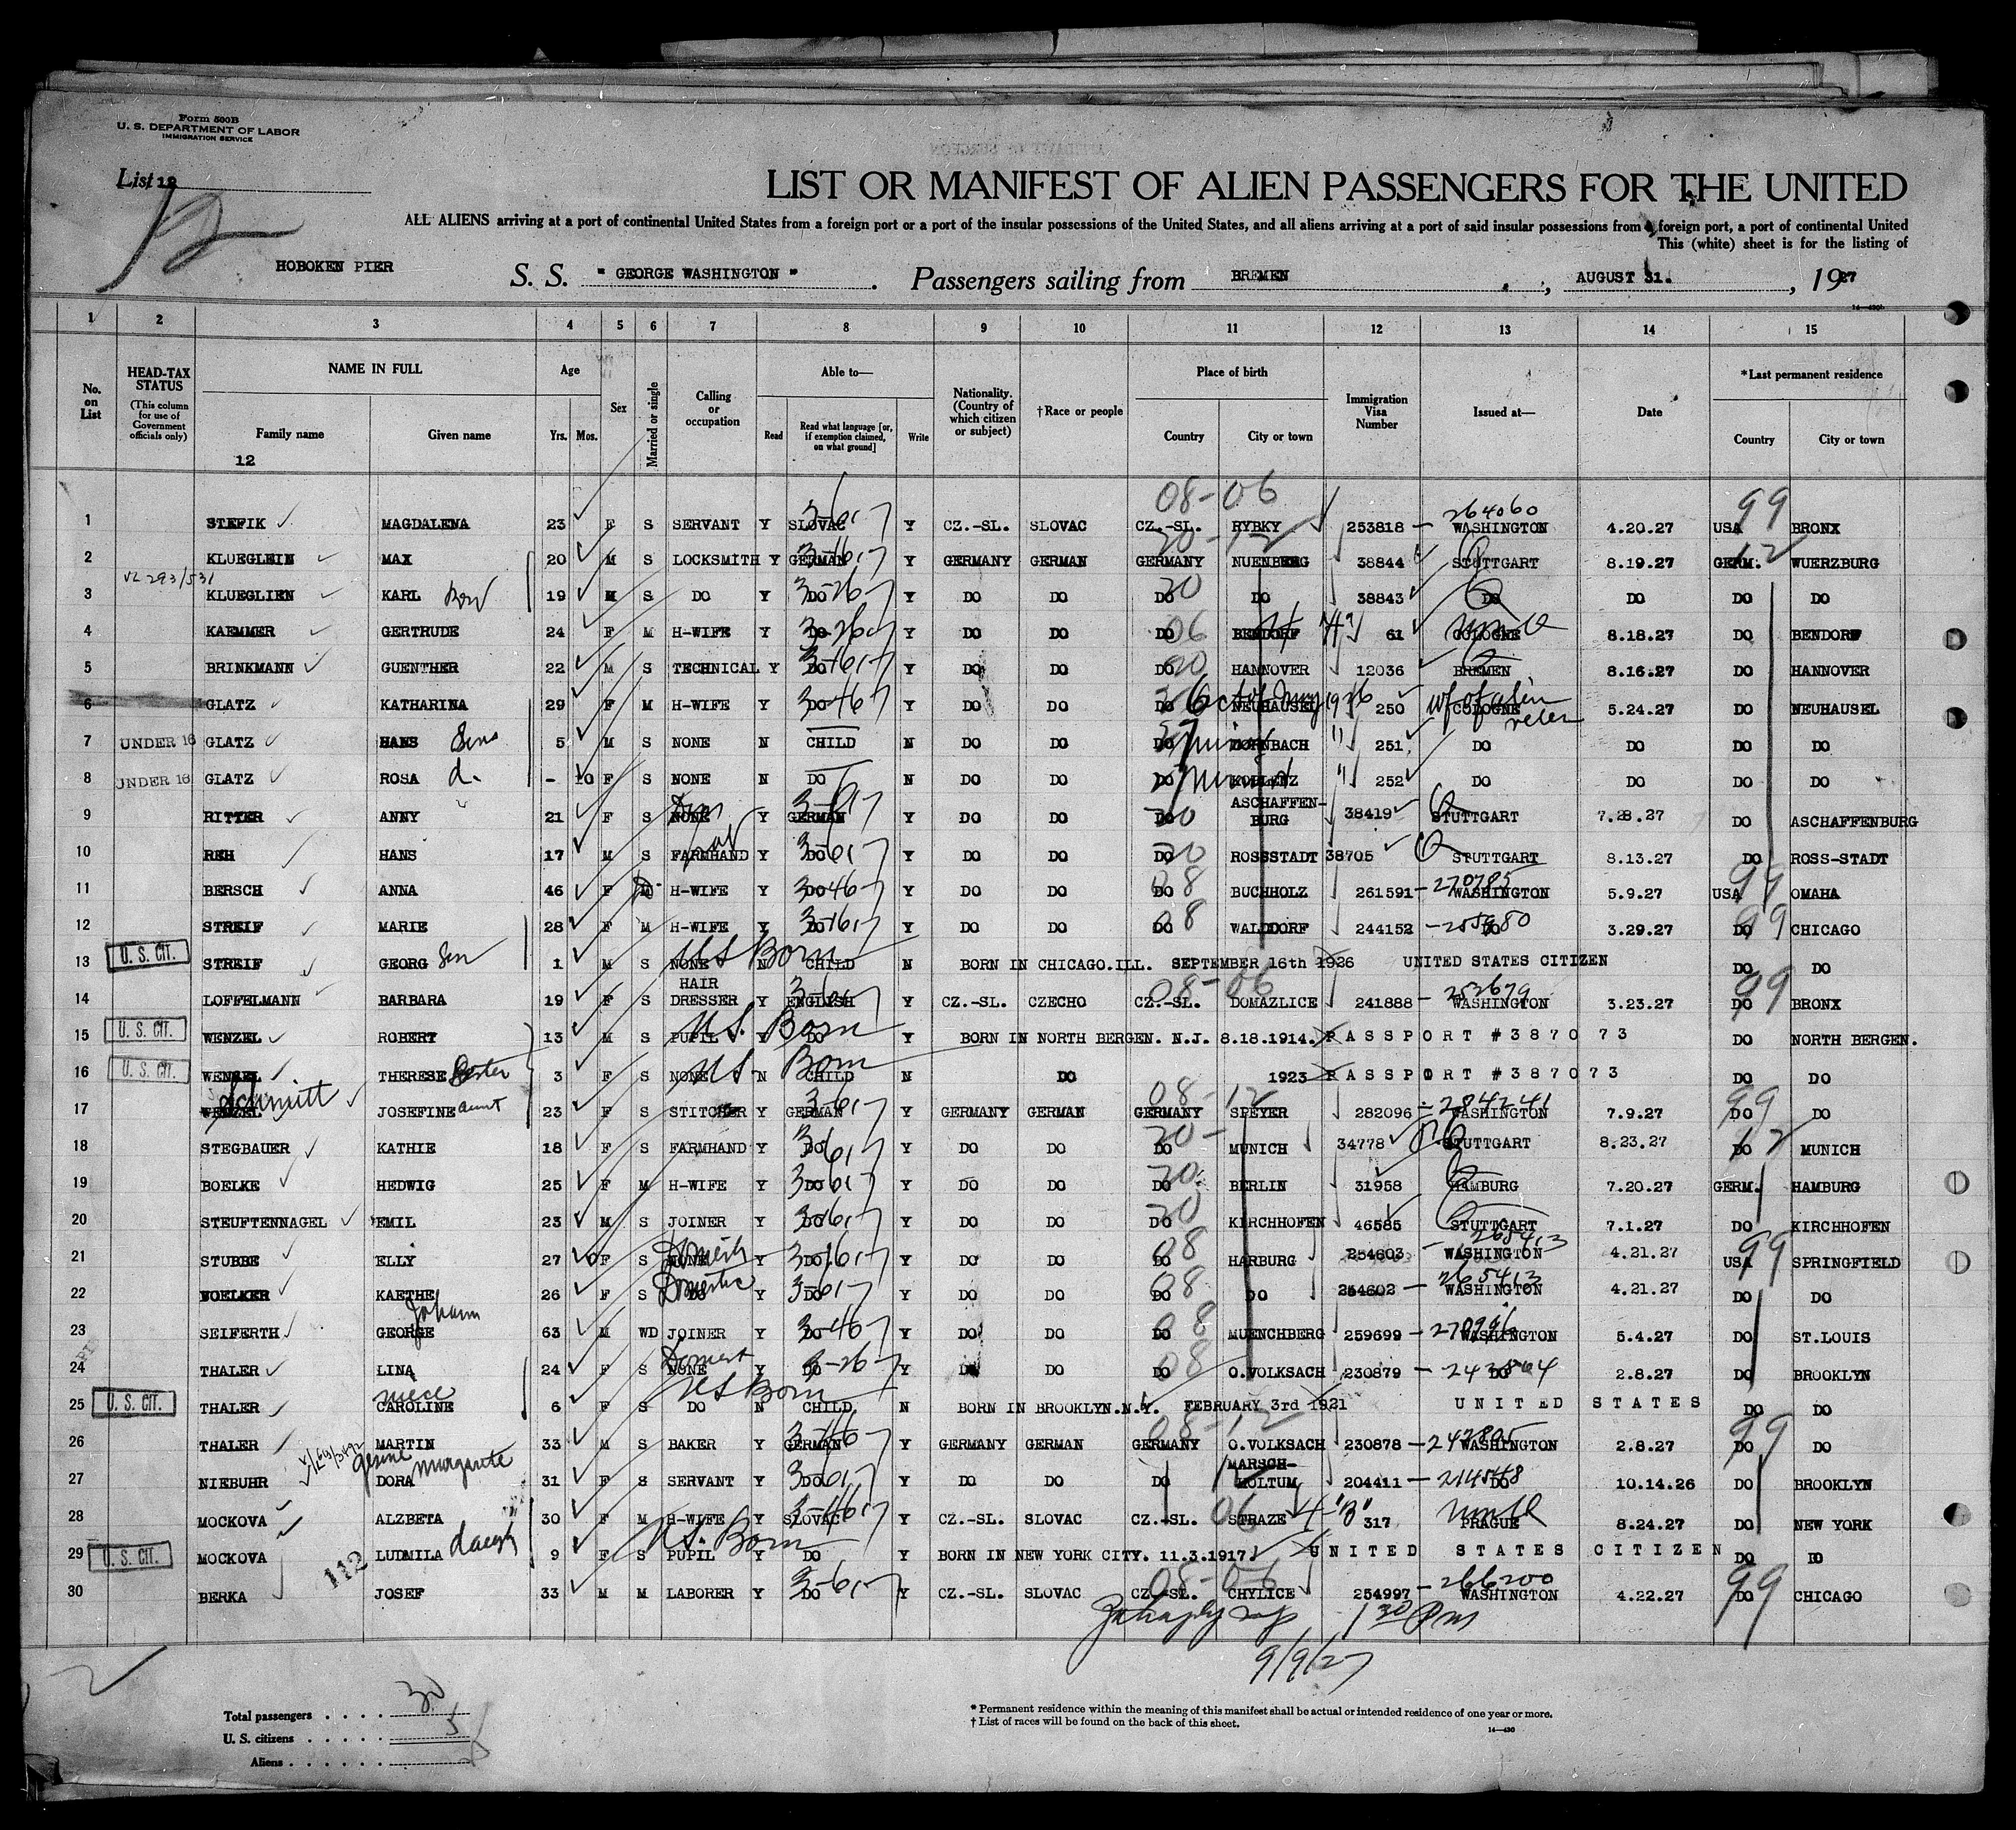 Form 500B
U. S. DEPARTMENT OF LABOR
IMMIGRATION SERVICE
List 12
12
LIST OR MANIFEST OF ALIEN PASSENGERS FOR THE UNITED
ALL ALIENS arriving at a port of continental United States from a foreign port or a port of the insular possessions of the United States, and all aliens arriving at a port of said insular possessions from a foreign port, a port of continental United
This (white) sheet is for the listing of
HOBOKEN PIER S. S. " GEORGE WASHINGTON " . Passengers sailing from BREMEN , AUGUST 31. , 1927
1 2 3 4 5 6 7 8 9 10 11 12 13 14 15
No. on List HEAD-TAX STATUS (This column for use of Government officials only) NAME IN FULL Family name Given name Age Yrs. Mos. Sex Married or single Calling or occupation Able to— Read Read what language [or, if exemption claimed, on what ground] Write Nationality. (Country of which citizen or subject) †Race or people Place of birth Country City or town Immigration Visa Number Issued at— Date *Last permanent residence Country City or town
12
08-06 264060 99
1 STEFIK MAGDALENA 23 F S SERVANT Y SLOVAC Y CZ.-SL. SLOVAC CZ.-SL. RYBKY 253818 WASHINGTON 4.20.27 USA BRONX
2 KLUEGLEIN MAX 20 M S LOCKSMITH Y GERMAN Y GERMANY GERMAN GERMANY NUENBERG 38844 STUTTGART 8.19.27 GERM. WUERZBURG
VL 293/531
3 KLUEGLIEN KARL 19 M S DO Y DO Y DO DO DO DO 38843 DO DO DO DO
4 KAEMMER GERTRUDE 24 F M H-WIFE Y DO Y DO DO DO BENDORF 61 COLOGNE 8.18.27 DO BENDORF
5 BRINKMANN GUENTHER 22 M S TECHNICAL Y DO Y DO DO DO HANNOVER 12036 BREMEN 8.16.27 DO HANNOVER
6 GLATZ KATHARINA 29 F M H-WIFE Y DO Y DO DO DO NEUHAUSEL 250 COLOGNE 5.24.27 DO NEUHAUSEL
7 UNDER 16 GLATZ HANS 5 M S NONE N CHILD N DO DO DO DORNBACH 251 DO DO DO DO
8 UNDER 16 GLATZ ROSA d. - 10 F S NONE N DO N DO DO DO KOBLENZ 252 DO DO DO DO
9 RITTER ANNY 21 F S NONE Y GERMAN Y DO DO DO ASCHAFFEN-BURG 38419 STUTTGART 7.28.27 DO ASCHAFFENBURG
10 REH HANS 17 M S FARMHAND Y DO Y DO DO DO ROSSSTADT 38705 STUTTGART 8.13.27 DO ROSS-STADT
11 BERSCH ANNA 46 F M H-WIFE Y DO Y DO DO DO BUCHHOLZ 261591 - 270785 WASHINGTON 5.9.27 USA OMAHA
12 STREIF MARIE 28 F M H-WIFE Y DO Y DO DO DO WALDDORF 244152 DO 3.29.27 DO CHICAGO
13 U. S. CIT. STREIF GEORG Son 1 M S NONE US Born N CHILD N BORN IN CHICAGO.ILL. SEPTEMBER 16th 1926 UNITED STATES CITIZEN DO DO
14 LOFFELMANN BARBARA 19 F S HAIR DRESSER Y ENGLISH Y CZ.-SL. CZECHO CZ.-SL. DOMAZLICE 241888 - 252679 WASHINGTON 3.23.27 DO BRONX
15 U. S. CIT. WENZEL ROBERT 13 M S PUPIL U.S. Born Y DO Y BORN IN NORTH BERGEN. N.J. 8.18.1914. PASSPORT #387073 DO NORTH BERGEN.
16 U. S. CIT. WENZEL THERESE Sister 3 F S NONE U.S. Born N CHILD N DO 1923 PASSPORT #387073 DO DO
17 WENZEL Schmitt JOSEFINE aunt 23 F S STITCHER Y GERMAN Y GERMANY GERMAN GERMANY SPEYER 282096 - 284241 WASHINGTON 7.9.27 DO DO
18 STEGBAUER KATHIE 18 F S FARMHAND Y DO Y DO DO DO MUNICH 34778 STUTTGART 8.23.27 DO MUNICH
19 BOELKE HEDWIG 25 F M H-WIFE Y DO Y DO DO DO BERLIN 31958 HAMBURG 7.20.27 GERM. HAMBURG
20 STEUFTENNAGEL EMIL 23 M S JOINER Y DO Y DO DO DO KIRCHHOFEN 46585 STUTTGART 7.1.27 DO KIRCHHOFEN
21 STUBBE ELLY 27 F S NONE Domestic Y DO Y DO DO DO HARBURG 254603 - 265413 WASHINGTON 4.21.27 USA SPRINGFIELD
22 VOELKER KAETHE 26 F S DO Domestic Y DO Y DO DO DO DO 254602 - 265413 WASHINGTON 4.21.27 DO DO
23 SEIFERTH GEORGE Johann 63 M WD JOINER Y DO Y DO DO DO MUENCHBERG 259699 WASHINGTON 5.4.27 DO ST.LOUIS
24 THALER LINA 24 F S NONE Domest Y DO Y DO DO DO O.VOLKSACH 230879 DO 2.8.27 DO BROOKLYN
25 U. S. CIT. THALER CAROLINE niece 6 F S DO US Born N CHILD. N BORN IN BROOKLYN.N.Y. FEBRUARY 3rd 1921 UNITED STATES DO DO
26 THALER MARTIN 33 M S BAKER Y GERMAN Y GERMANY GERMAN GERMANY O.VOLKSACH 230878 - 242805 WASHINGTON 2.8.27 DO DO
27 NIEBUHR Gesine DORA Margarete 31 F S SERVANT Y DO Y DO DO DO MARSCH-HOLTUM 204411 - 214548 DO 10.14.26 DO BROOKLYN
28 MOCKOVA ALZBETA 30 F M H-WIFE Y SLOVAC Y CZ.-SL. SLOVAC CZ.-SL. STRAZE 4-"B" 317 PRAGUE 8.24.27 DO NEW YORK
29 U. S. CIT. MOCKOVA LUDMILA daugh 9 F S PUPIL U.S. Born Y DO Y BORN IN NEW YORK CITY. 11.3.1917. UNITED STATES CITIZEN DO DO
112
30 BERKA JOSEF 33 M M LABORER Y DO Y CZ.-SL. SLOVAC CZ.-SL. CHYLICE 254997 - 266200 WASHINGTON 4.22.27 DO CHICAGO
1 30 Pm
9/9/27
Total passengers . . . . 30
U. S. citizens . . . . . 5
Aliens . . . . . .
* Permanent residence within the meaning of this manifest shall be actual or intended residence of one year or more.
† List of races will be found on the back of this sheet.
14—430